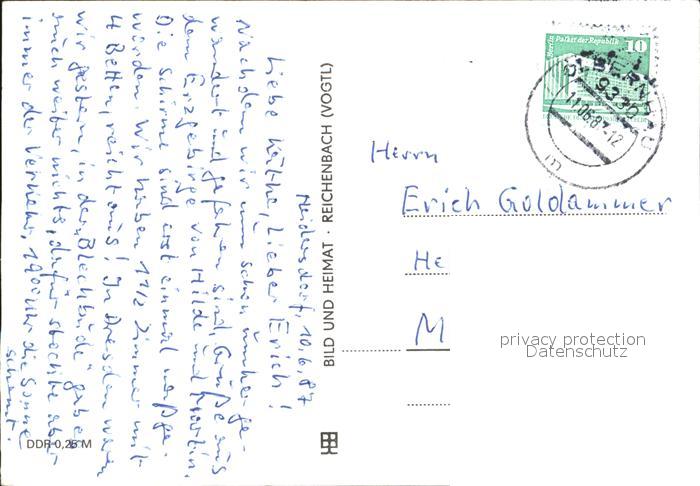 Heidersdorf, 10.6.87
Liebe Käthe, Lieber Erich!
Nachdem wir nun schon umherge-
wandert und gefahren sind, Grüße aus
dem Erzgebirge von Hilde und Martin.
Die Schirme sind erst einmal
worden. Wir haben 1 1/2 Zimmer mit
4 Betten, reicht aus! In Dresden waren
wir gestern, in der „Blechbüde" gabe
mich weiter nichts, dafür aber
immer der Verkehr, 19 00 Uhr die Sonne
scheint.
DDR 0,25 M
BILD UND HEIMAT · REICHENBACH (VOGTL)
Berlin Palast der Republik 10
9336
11.06.87-12
m
Herrn
Erich Goldammer
He
M
privacy protection
Datenschutz